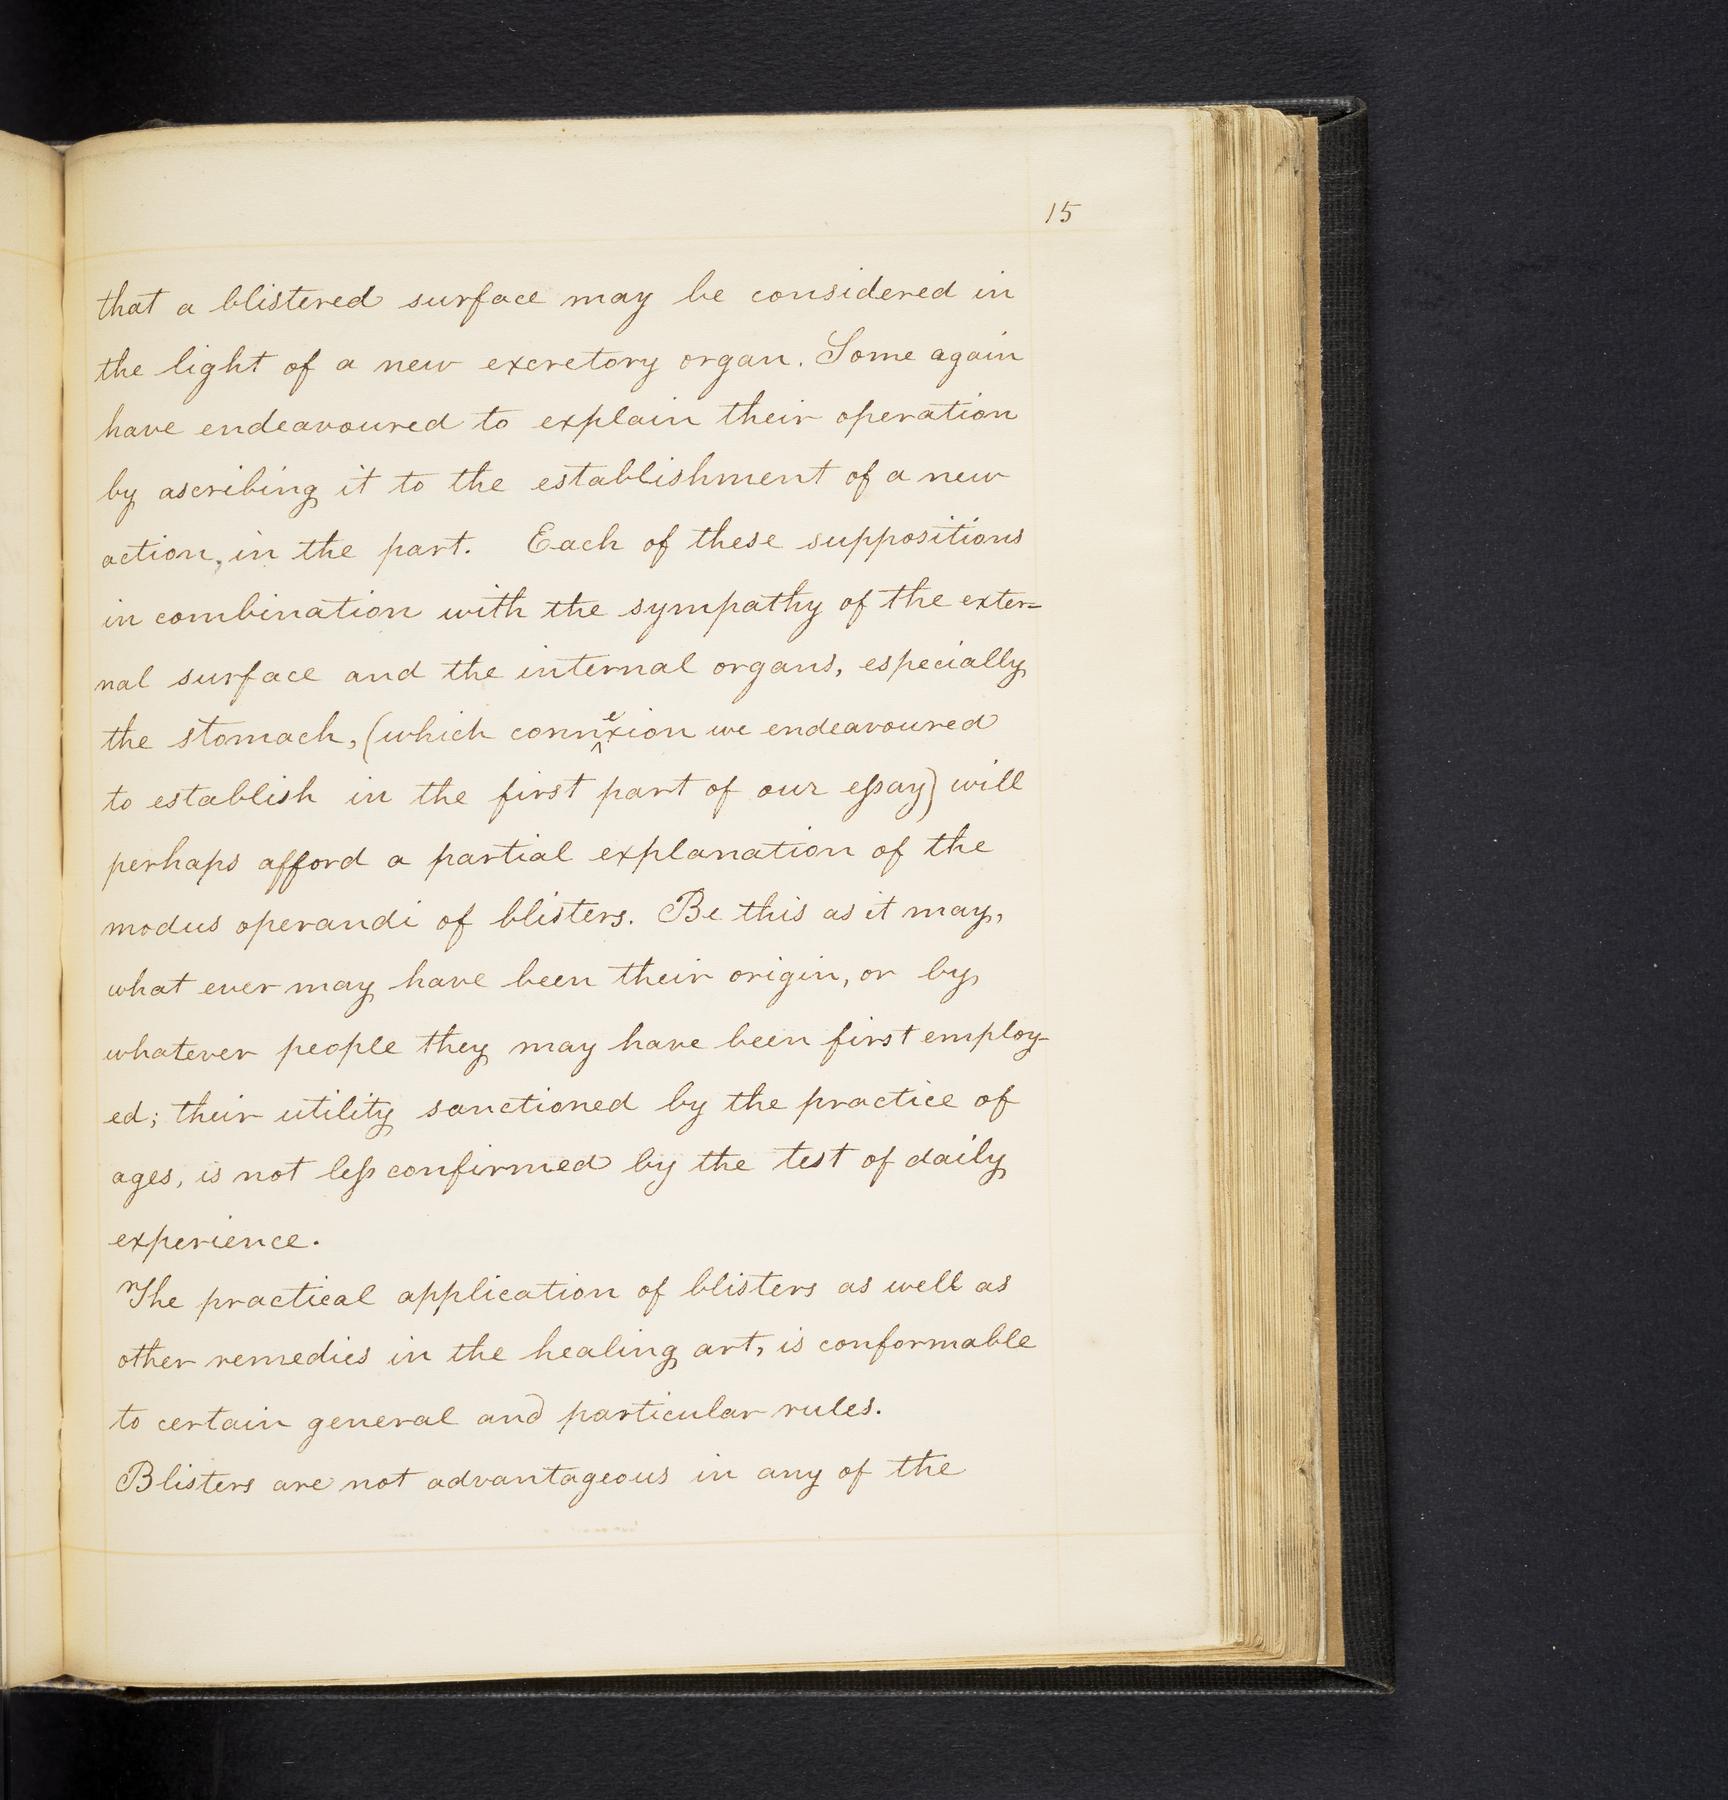 15
that a blistered surface may be considered in
the light of a new excretory organ. Some again
have endeavoured to explain their operation
by ascribing it to the establishment of a new
action, in the part. Each of these suppositions
in combination with the sympathy of the exter=
nal surface and the internal organs, especially
the stomach, (which connexion we endeavoured
to establish in the first part of our eſsay) will
perhaps afford a partial explanation of the
modus operandi of blisters. Be this as it may,
what ever may have been their origin, or by
whatever people they may have been first employ-
ed; their utility sanctioned by the practice of
ages, is not leſs confirmed by the test of daily
experience.
The practical application of blisters as well as
other remedies in the healing art, is conformable
to certain general and particular rules.
Blisters are not advantageous in any of the